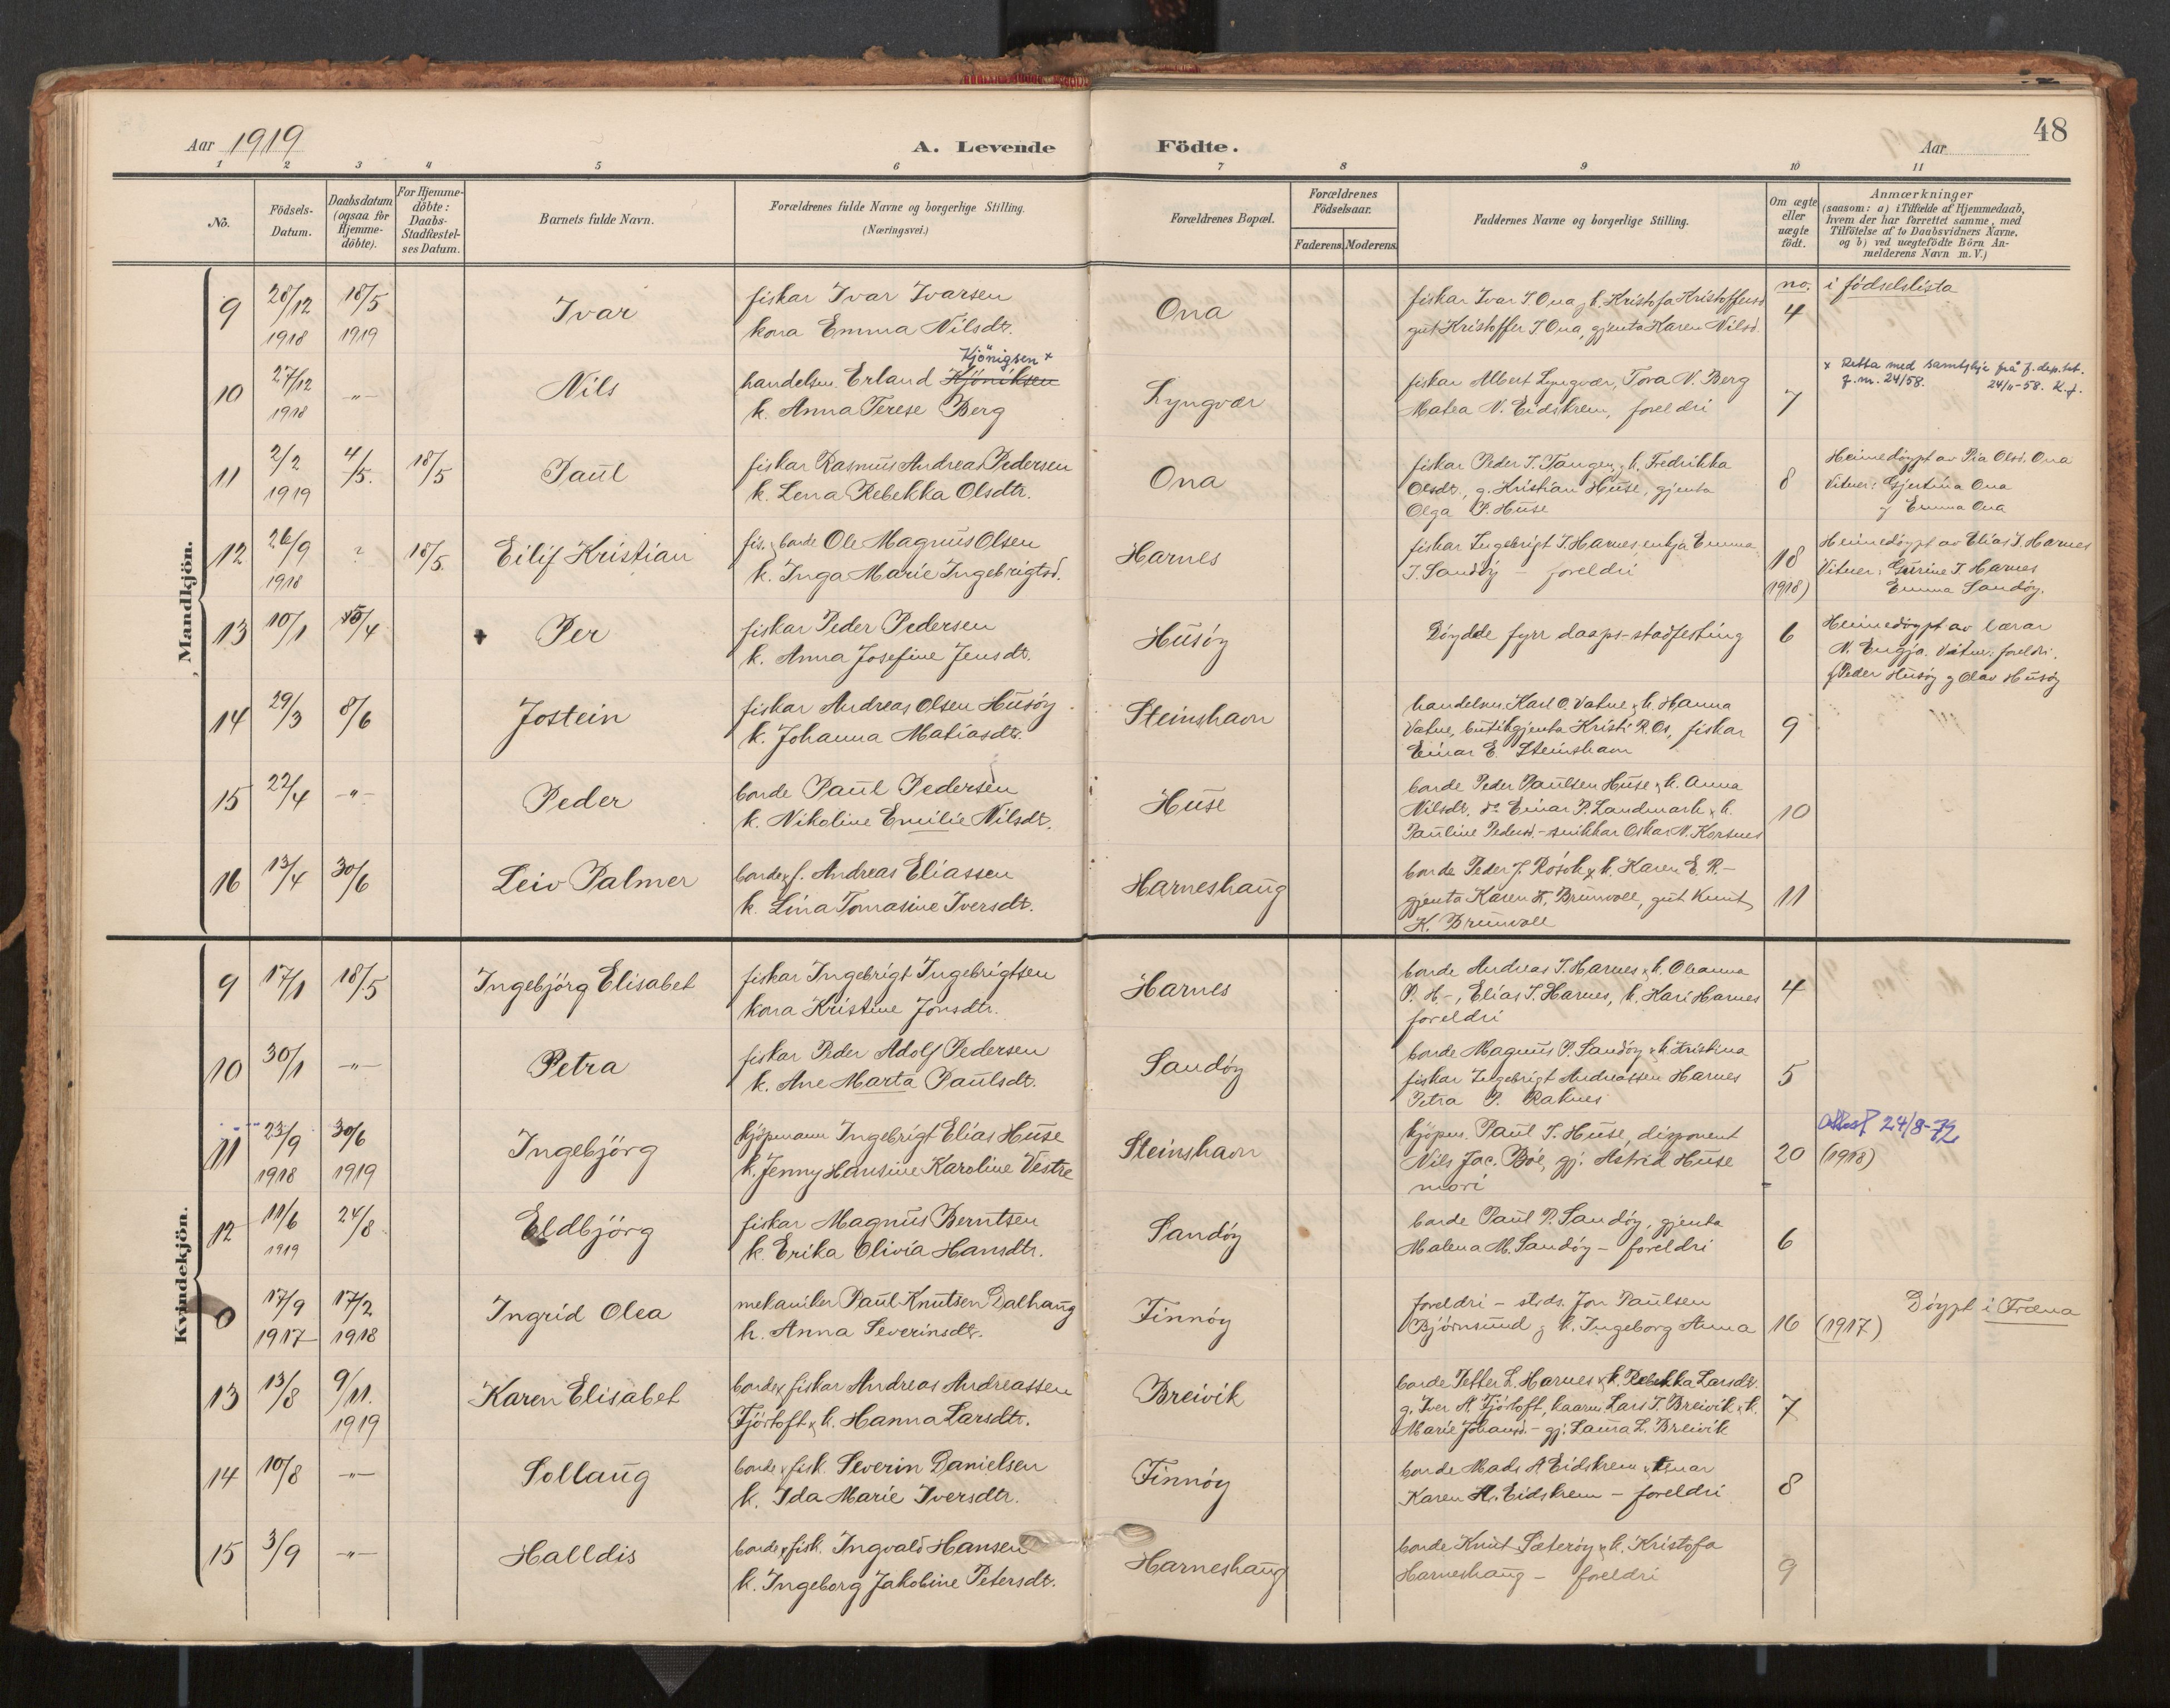 48
Aar 1919
A. Levende Födte.
Aar
1 2 3 4 5 6 7 8 9 10 11
No.
Födsels-Datum.
Daabsdatum (ogsaa for Hjemme-döbte).
For Hjemme-döbte: Daabs-Stadfæstel-ses Datum.
Barnets fulde Navn.
Forældrenes fulde Navne og borgerlige Stilling.
(Næringsvei.)
Forældrenes Bopæl.
Forældrenes Födselsaar.
Faderens. Moderens.
Faddernes Navne og borgerlige Stilling.
Om ægte eller uægte födt.
Anmærkninger
(saasom: a) i Tilfælde af Hjemmedaab,
hvem der har forrettet samme, med
Tilföielse af to Daabsvidners Navne,
og b) ved uægtefödte Börn An-
melderens Navn m. V.)
Mandkjön.
no. i födselslista
9 28/12 1918 18/5 1919 Ivar
fiskar Ivar Ivarsen
kona Emma Nilsdt.
Ona
fiskar Ivar I. Ona, k. Kristofa Kristoffersd
gut Kristoffer I. Ona, gjenta Karen Nilsd.
4
10 27/12 1918 -"- Nils
Kjönigsen x
handelsm. Erland Kjöniksen
k. Anna Terese Berg
Lyngvær
fiskar Albert Lyngvær, Tora N. Berg
Matea N. Eidskrem, foreldri
7
x Retta med samtykje frå J.dep.
J.nr. 24/58. 24/11-58. K.f.
11 2/2 1919 4/5. 18/5 Paul
fiskar Rasmus Andreas Pedersen
k. Lena Rebekka Olsdtr.
Ona
fiskar Peder I. Tangen, k. Fredrikka
Olsdt., g. Kristian Huse, gjenta
Olga P. Huse
8
Heimedöypt av Pia Olsd. Ona
Vitner: Gjertina Ona
og Emma Ona
12 26/9 1918 ? 18/5 Eilif Kristian
fis. & bonde Ole Magnus Olsen
k. Inga Marie Ingebrigtsd.
Harnes
fiskar Ingebrigt I. Harnes, enkja Emma
I. Sandöy - foreldri
18
1918)
Heimedöypt av Elias I. Harnes
Vitner: Gurine I. Harnes
Emma Sandöy.
13 10/1 15/4 Per
fiskar Peder Pedersen
k. Anna Josefine Jensdt.
Husöy
Döydde fyrr daaps-stadfesting
6
Heimedöypt av lærar
N. Engja. Vitner: foreldri.
Peder Husöy og Olav Husöy
14 29/3 8/6 Jostein
fiskar Andreas Olsen Husöy
k. Johanna Matiasdt.
Steinshavn
handelsm. Karl O. Vatne, k. Hanna
Vatne, butikgjenta Kristi R. Os, fiskar
Einar E. Steinshavn
9
15 22/4 -"- Peder
bonde Paul Pedersen
k. Nikoline Emilie Nilsdt.
Huse
bonde Peder Paulsen Huse & k. Anna
Nilsdt. do Einar P. Landmark & k.
Pauline Pedersd. - snikkar Oskar N. Korsnes
10
16 13/4 30/6 Leiv Palmer
bonde & f. Andreas Eliassen
k. Lina Tomasine Iversdt.
Harneshaug
bonde Peder J. Rösok & k. Karen E. R.-
gjenta Karen K. Brunvoll, gut Knut
K. Brunvoll
11
Kvindekjön.
9 17/1 18/5 Ingebjörg Elisabet
fiskar Ingebrigt Ingebrigtsen
kona Kristine Jonsdtr.
Harnes
bonde Andreas I. Harnes, k. Oleanna
P. H.-, Elias I. Harnes, k. Kari Harnes
foreldri
4
10 30/1 -"- Petra
fiskar Peder Adolf Pedersen
k. Ane Marta Paulsdt.
Sandöy
bonde Magnus P. Sandöy & k. Kristina
fiskar Ingebrigt Andreassen Harnes
Petra P. Raknes
5
11 23/9 1918 30/6 1919 Ingebjörg
kjöpmann Ingebrigt Elias Huse
k. Jenny Hansine Karoline Vestre
Steinshavn
kjöpm. Paul I. Huse, disponent
Nils Jac. Böe, gj. Astrid Huse
mori
20 (1918)
Attest 24/8-72
12 11/6 1919 24/8 Eldbjörg
fiskar Magnus Berntsen
k. Erika Olivia Hansdtr.
Sandöy
bonde Paul P. Sandöy, gjenta
Malena M. Sandöy - foreldri
6
0 17/9 1917 17/2 1918 Ingrid Olea
mekaniker Paul Knutsen Dalhaug
k. Anna Severinsdt.
Finnöy
foreldri - Jon Paulsen
Björnsund & k. Ingeborg Anna
16 (1917)
Döypt i Fræna
13 13/8 9/11. 1919 Karen Elisabet
bonde & fiskar Andreas Andreassen
Fjörtoft & k. Hanna Larsdtr.
Breivik
bonde Petter L. Harnes & k. Rebekka Larsdt.
g. Iver A. Fjörtoft, kaarm. Lars I. Breivik & k.
Marie Johansd. - gj. Laura L. Breivik
7
14 10/8 -"- Sollaug
bonde & fisk. Severin Danielsen
k. Ida Marie Iversdtr.
Finnöy
bonde Mads A Eidskrem, tenar
Karen H. Eidskrem - foreldri
8
15 3/9 -"- Halldis
bonde & fisk. Ingvald Hansen
k. Ingeborg Jakobine Petersdt.
Harneshaug
bonde Knut Sæteröy & k. Kristofa
Harneshaug - foreldri
9